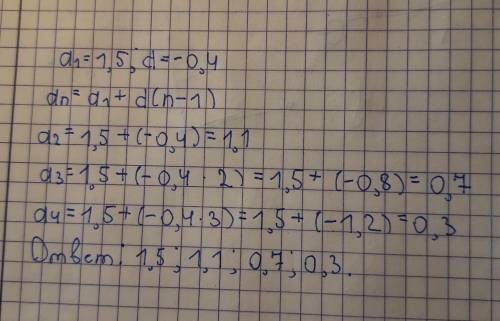 a₁=1,5; d=-0,4
an=a₁+d(n-1)
a₂=1,5+(-0,4)=1,1
a₃=1,5+(-0,4·2)=1,5+(-0,8)=0,7
a₄=1,5+(-0,4·3)=1,5+(-1,2)=0,3
Ответ: 1,5; 1,1; 0,7; 0,3.